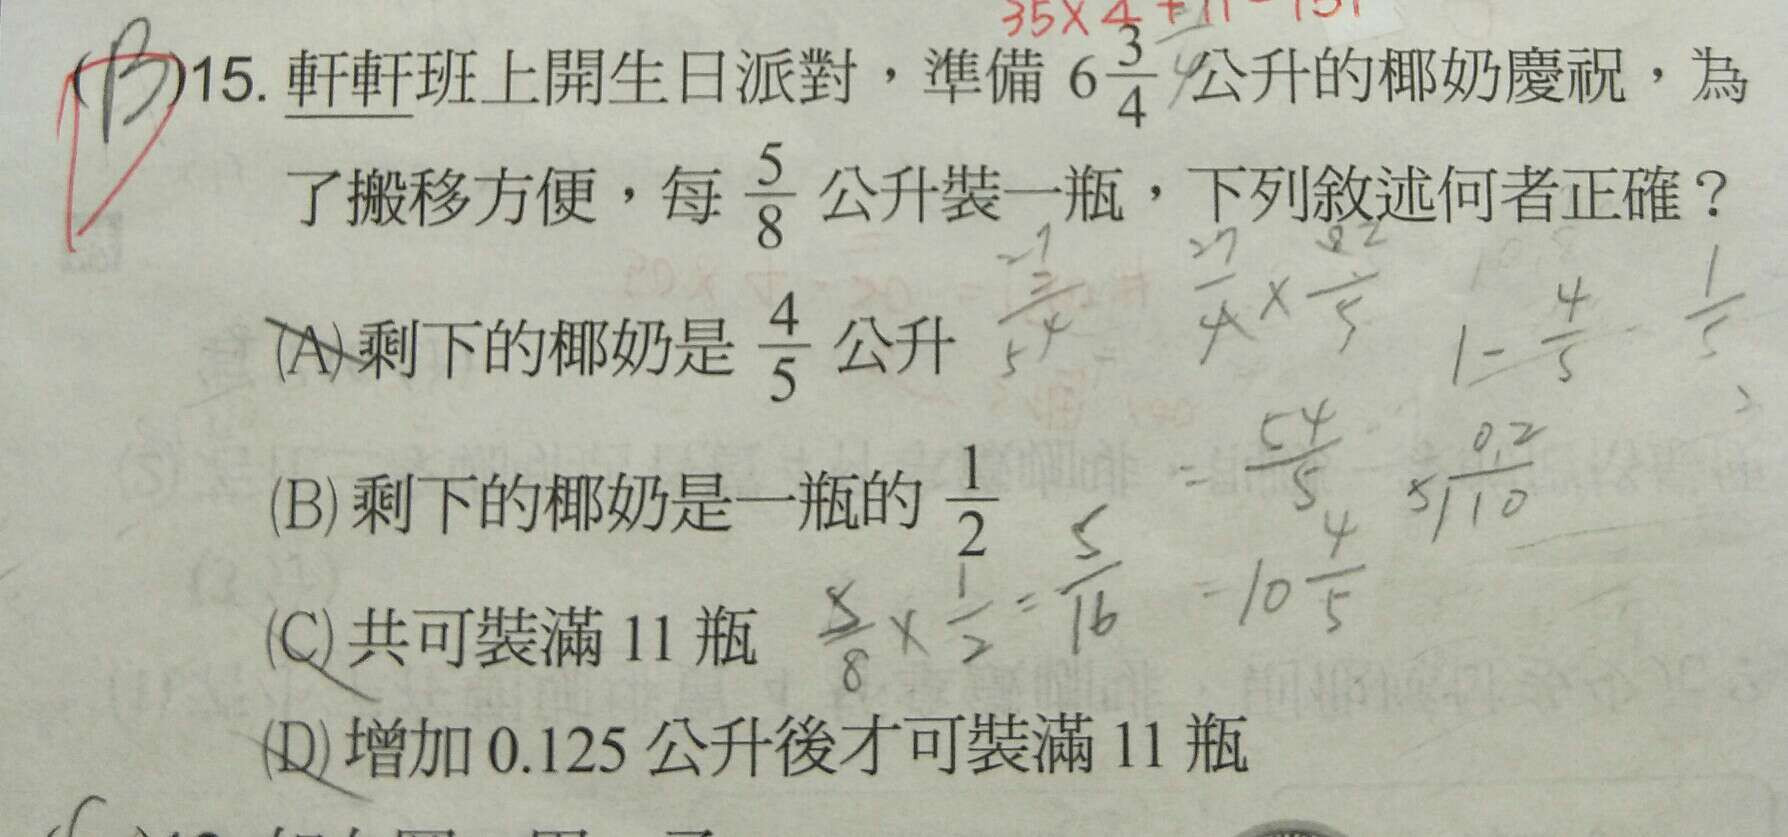 35×4+11=151
(B)15. 軒軒班上開生日派對，準備 6 3/4 公升的椰奶慶祝，為
了搬移方便，每 5/8 公升裝一瓶，下列敘述何者正確？
27/4 × 8/5
1 - 4/5 1/5
(A) 剩下的椰奶是 4/5 公升
= 54/5
0.2
5 1 10
(B) 剩下的椰奶是一瓶的 1/2
= 10 4/5
(C) 共可裝滿 11 瓶 5/8 × 1/2 = 5/16
(D) 增加 0.125 公升後才可裝滿 11 瓶